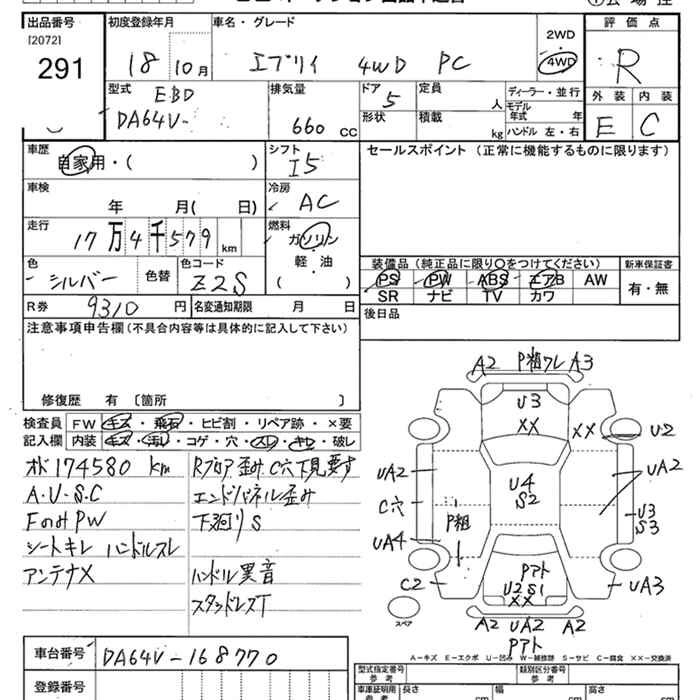 出品番号
[2072]
291
初度登録年月
18 10月
車名・グレード
エブリイ 4WD PC
2WD
4WD
評価点
R
外装 内装
E C
型式
EBD
DA64V-
排気量
660 cc
ドア
5
形状
定員
人
積載
kg
ディーラー・並行
モデル年式 年
ハンドル 左・右
車歴
自家用・( )
シフト
I5
車検
年 月( 日)
冷房
AC
走行
17万4千579 km
燃料
ガソリン
軽・油
( )
色
シルバー
色替
色コード
Z2S
R券 9310 円
名変通知期限 月 日
セールスポイント (正常に機能するものに限ります)
装備品 (純正品に限り○をつけてください)
新車保証書
PS PW ABS エアB AW
SR ナビ TV カワ
有・無
後日品
注意事項申告欄(不具合内容等は具体的に記入して下さい)
修復歴 有 〔箇所 〕
検査員 FW キズ・飛石・ヒビ割・リペア跡・×要
記入欄 内装 キズ・汚れ・コゲ・穴・スレ・キレ・破レ
オド174580 km
A・U・S・C
FのみPW
シートキレ ハンドルスレ
アンテナX
Rフロア歪みC穴下見要す
エンドパネル歪み
下廻りS
ハンドル異音
スタッドレスT
A2 P粗ワレ A3
U3
XX
XX
U2
UA2
C穴
UA4
U4
S2
UA2
U3
S3
P粗
C2
Pアト
U2S1
XX
UA3
スペア
A2 UA2 A2
Pアト
A-キズ E-エクボ U-凹み W-補修跡 S-サビ C-腐食 XX-交換済
車台番号 DA64V-168770
登録番号
型式指定番号
参考
類別区分番号
参考
車庫証明用
参考
長さ cm
幅 cm
高さ cm